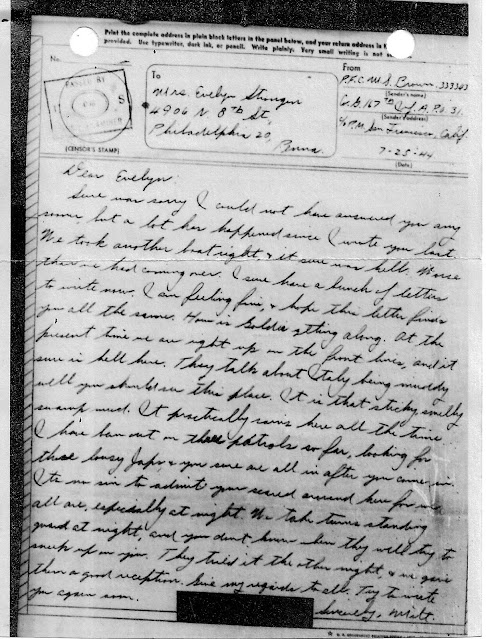 Print the complete address in plain block letters in the panel below, and your return address in the
provided. Use typewriter, dark ink, or pencil. Write plainly. Very small writing is not
No.
(CENSOR'S STAMP)
To
Mrs. Evelyn
4906 N 8th St,
Philadelphia 20,
Penna.
From
P.F.C. M. S. Brown, 333303
(Sender's name)
(Sender's address)
c/o P.M. San Francisco, Calif
7-25-44
(Date)
Dear Evelyn:
Sure was sorry I could not have answered you any
sooner but a lot has happened since I wrote you last.
We took another boat right, & it sure was hell. Worse
than we had coming over. I sure have a bunch of letters
to write now. I am feeling fine, & hope this letter finds
you all the same. How is Goldie getting along. At the
present time we are right up on the front lines, and it
sure is hell here. They talk about Italy being muddy
well you should see this place. It is that sticky, smelly
swamp mud. It practically rains here all the time.
I have ban out on three patrols so far, looking for
these lousy Japs & you sure are all in after you come in
Its no sin to admit your scared around here for we
all are, especially at night. We take turns standing
guard at night, and you dont know when they will try to
sneak up on you. They tried it the other night, & we gave
them a good reception. Give my regards to all. Try to write
you again soon.
Sincerely, Milt.